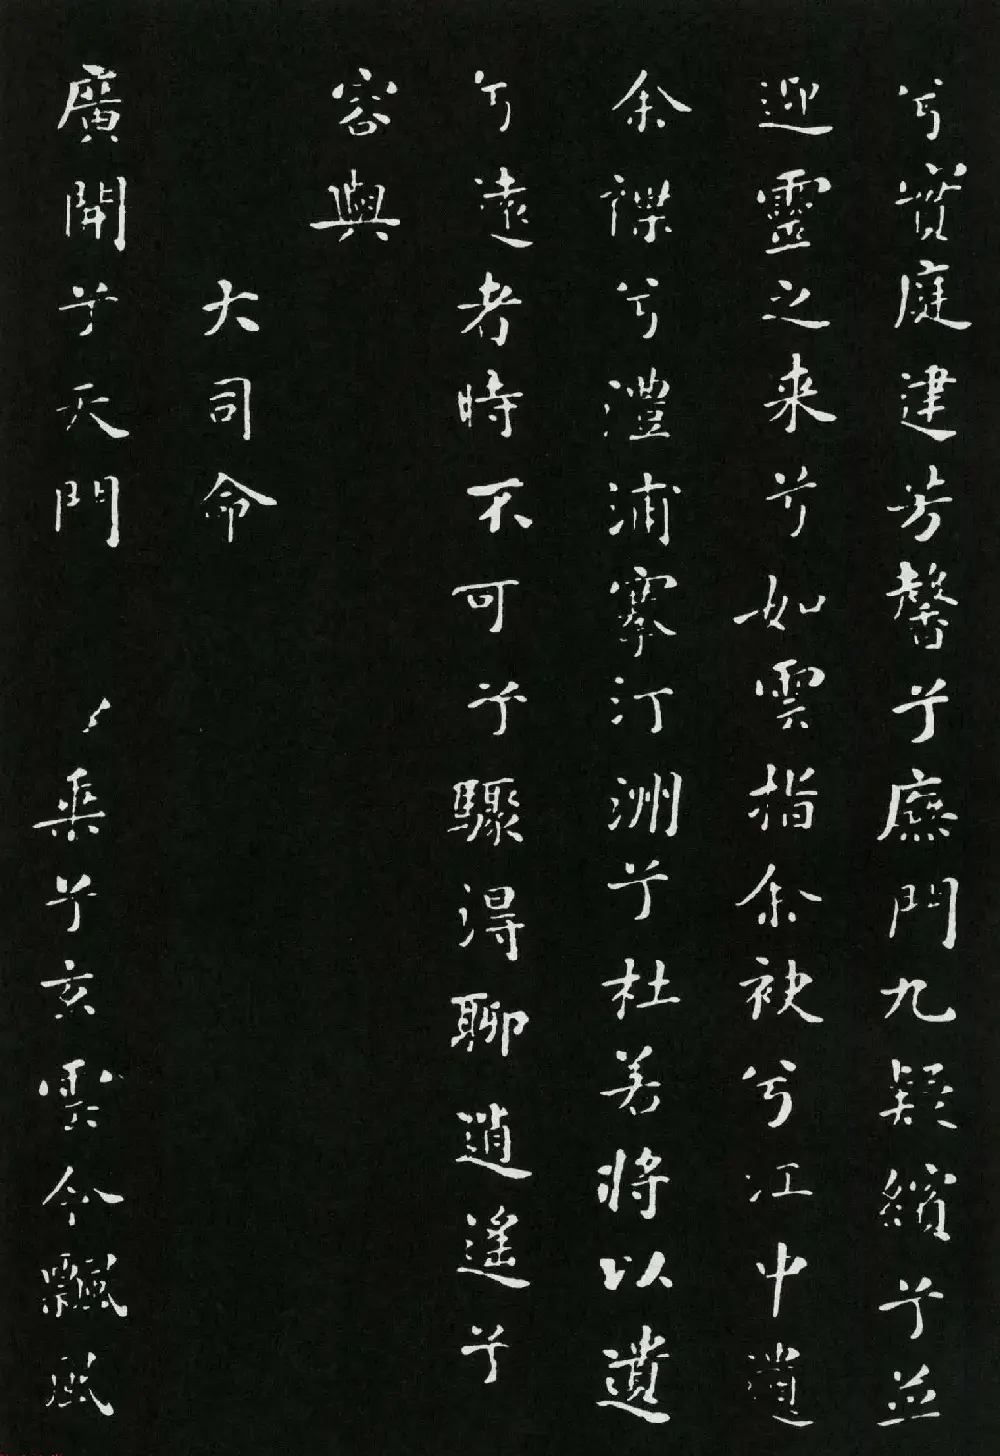 兮實庭建芳馨兮廡門九疑繽兮並
迎靈之来兮如雲捐余袂兮江中遺
余褋兮澧浦搴汀洲兮杜若將以遺
兮遠者時不可兮驟得聊逍遙兮
容與
大司命
廣開兮天門 乘兮玄雲令飄風